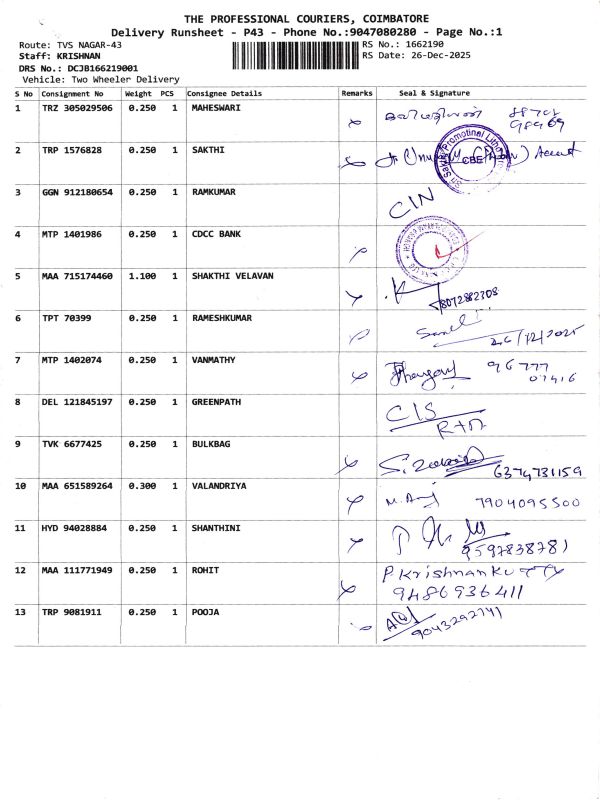 THE PROFESSIONAL COURIERS, COIMBATORE
Delivery Runsheet - P43 - Phone No.:9047080280 - Page No.:1
Route: TVS NAGAR-43 RS No.: 1662190
Staff: KRISHNAN RS Date: 26-Dec-2025
DRS No.: DCJB166219001
Vehicle: Two Wheeler Delivery
S No Consignment No Weight PCS Consignee Details Remarks Seal & Signature
1 TRZ 305029506 0.250 1 MAHESWARI
2 TRP 1576828 0.250 1 SAKTHI
CBE
3 GGN 912180654 0.250 1 RAMKUMAR CIN
4 MTP 1401986 0.250 1 CDCC BANK
5 MAA 715174460 1.100 1 SHAKTHI VELAVAN
8072882308
6 TPT 70399 0.250 1 RAMESHKUMAR
26/12/2025
7 MTP 1402074 0.250 1 VANMATHY 96777
07416
8 DEL 121845197 0.250 1 GREENPATH CIS
9 TVK 6677425 0.250 1 BULKBAG
6374731159
10 MAA 651589264 0.300 1 VALANDRIYA 7904095500
11 HYD 94028884 0.250 1 SHANTHINI
9597838781
12 MAA 111771949 0.250 1 ROHIT P Krishnan Kutty
9486936411
13 TRP 9081911 0.250 1 POOJA
9043292741